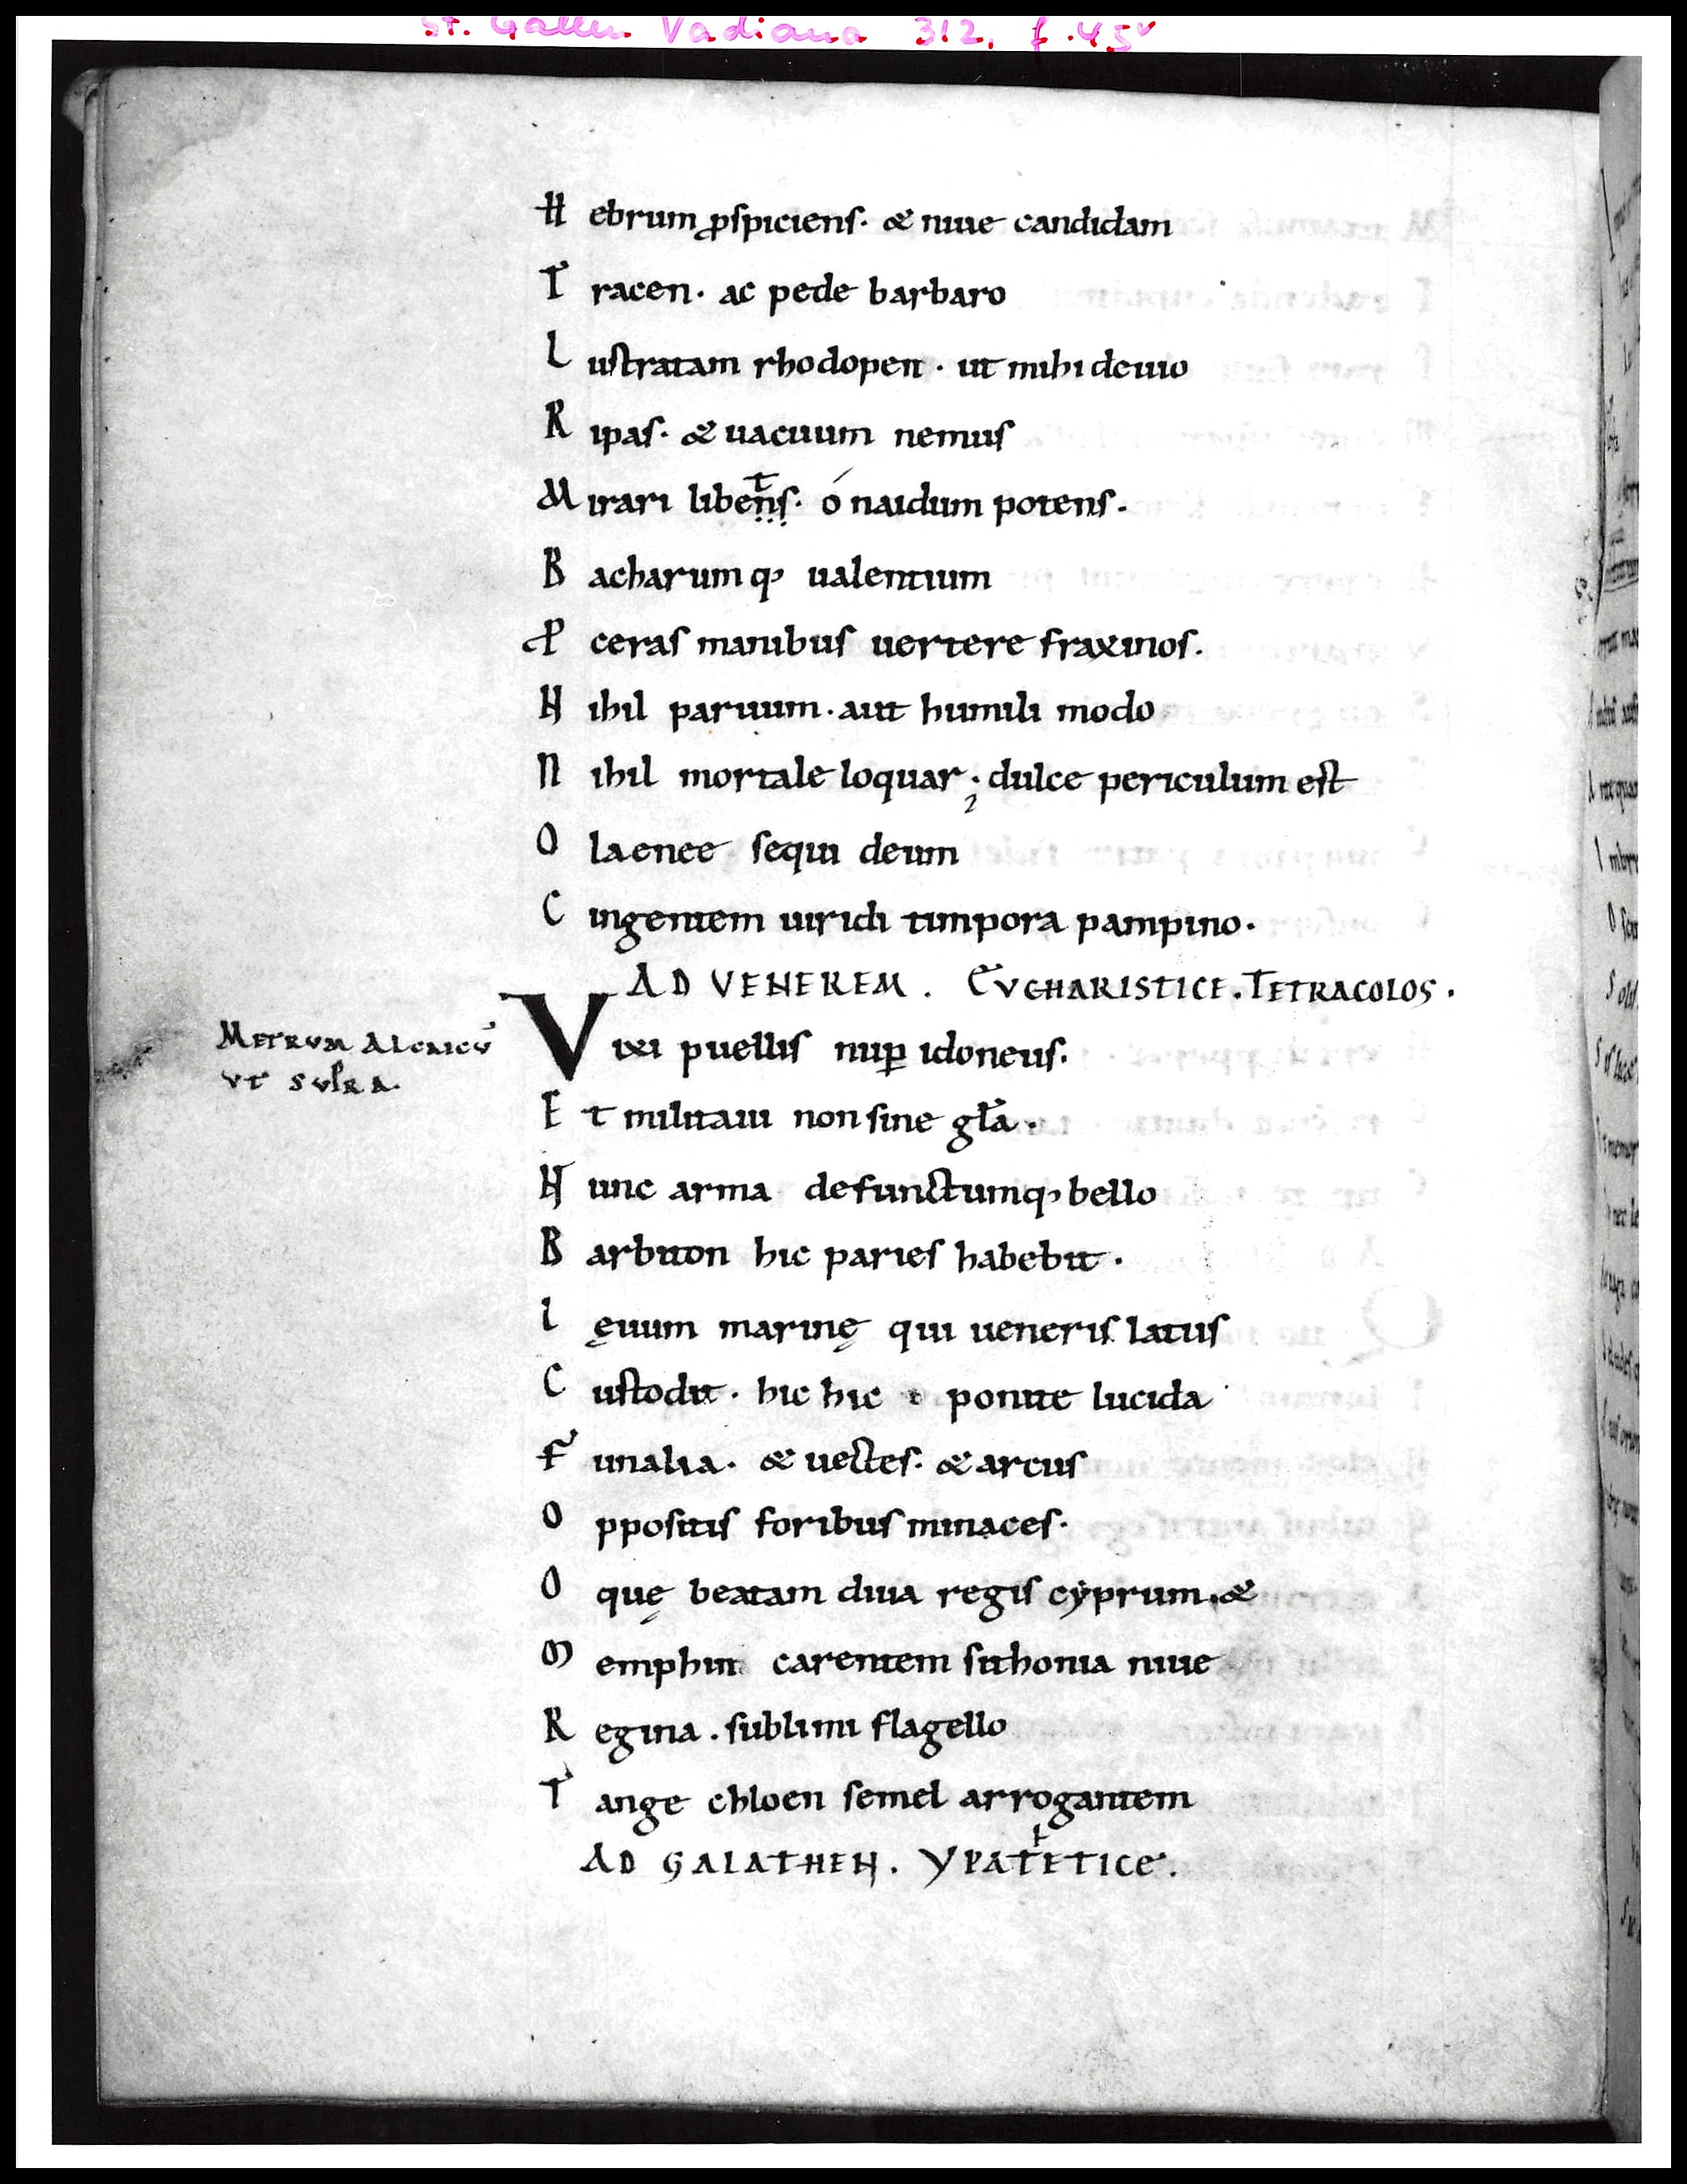 St. Gallen Vadiana 312, f. 45v
H ebrum ꝓspiciens· & niue candidam
T racen· ac pede barbaro
L ustratam rhodopen· ut mihi deuio
R ipas· & uacuum nemus
M irari libenṭs· ó naidum potens.
B acharumq; ualentium
P ceras manibus uertere fraxinos.
N ihil paruum· aut humili modo
N ihil mortale loquar; dulce periculum est
O laenee sequi deum
C ingentem uiridi timpora pampino.
AD VENEREM. EVCHARISTICE. TETRACOLOS.
METRVM ALCAICV̄
VT SVPRA.
V ixi puellis nuꝑ idoneus.
E t militaui non sine gl̄a.
N unc arma defunctumq; bello
B arbiton hic paries habebit.
L ęuum marinę qui ueneris latus
C ustodit· hic hic ponite lucida
F unalia· & uectes· & arcus
O ppositis foribus minaces·
O quę beatam diua regis cẏprum· &
M emphin carentem sithonia niue
R egina· sublimi flagello
T ange chloen semel arrogantem
AD GALATHEN. YPATETICE.